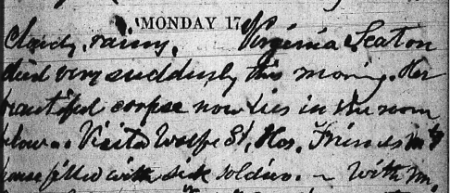 MONDAY 17
Cloudy, rainy. Virginia Seaton
died very suddenly this morning. Her
beautiful corpse now lies in the room
below. Visited Wolfe St. Hos. Friends
house filled with sick soldiers. – With